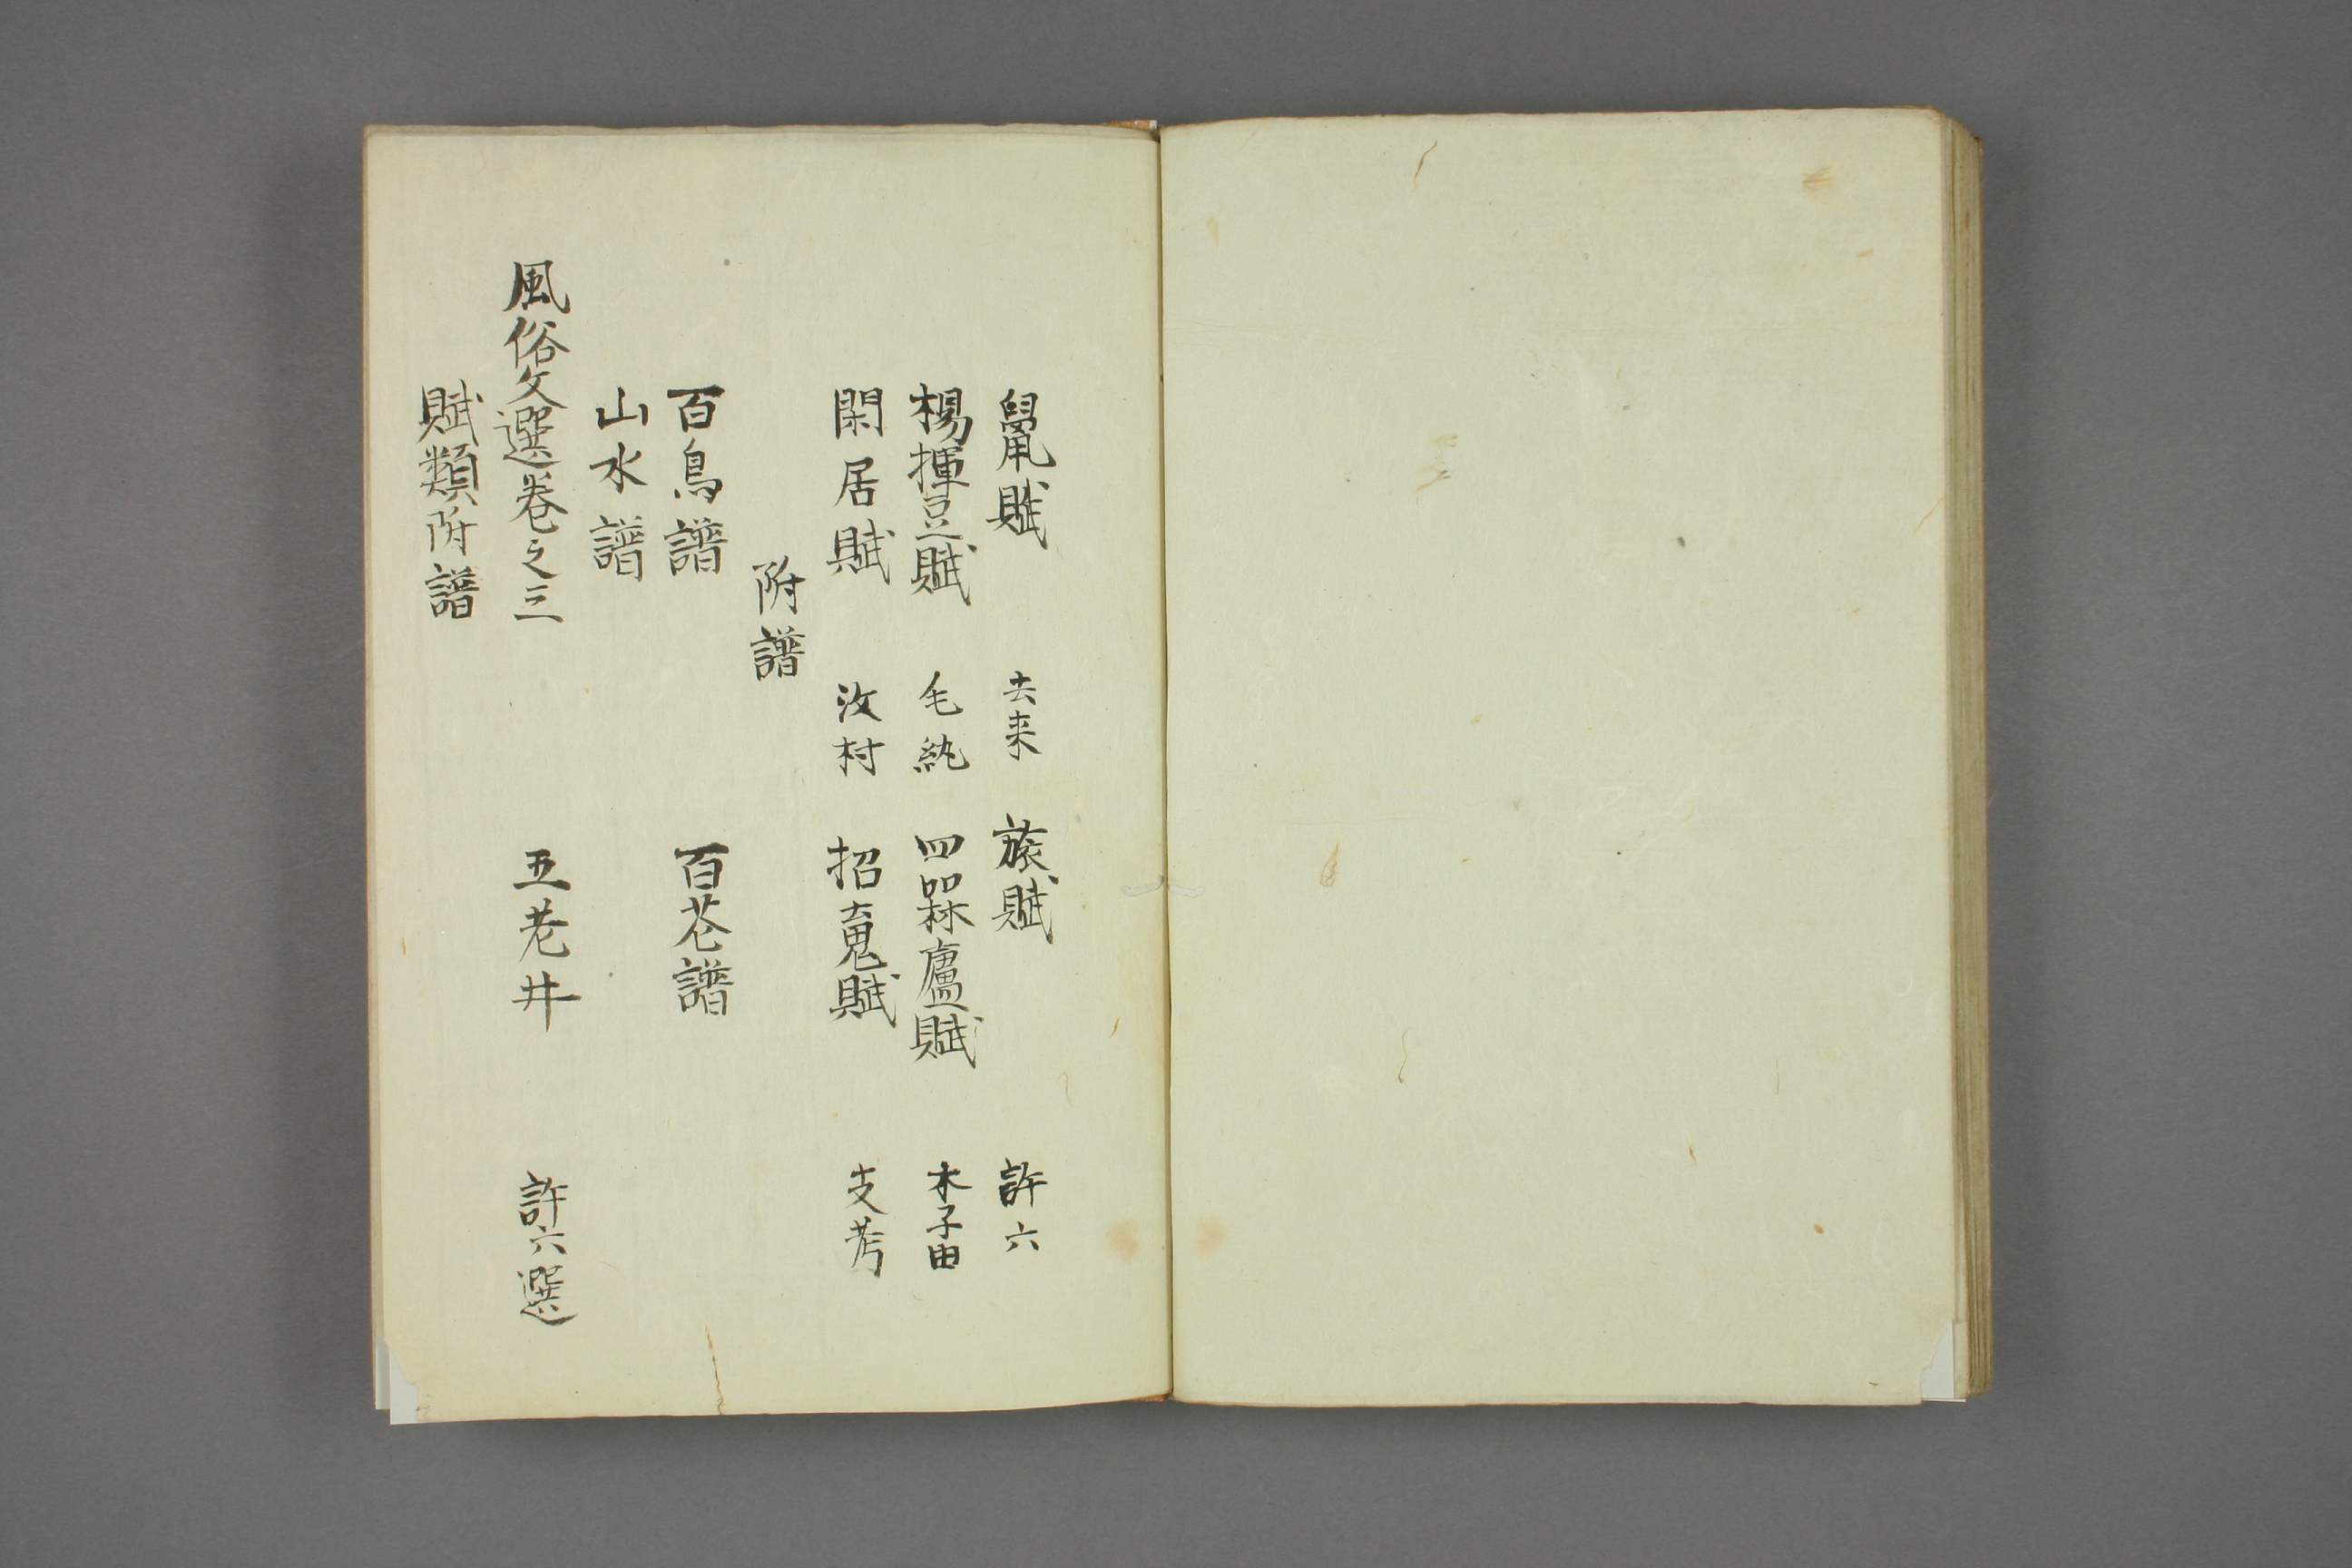 鼠賦 去来 旅賦 許六
楊揮豆賦 毛紈 四槑廬賦 李由
閑居賦 汶村 招魂賦 支考
附譜
百鳥譜 百花譜
山水譜
風俗文選巻之三 五老井 許六選
賦類附譜